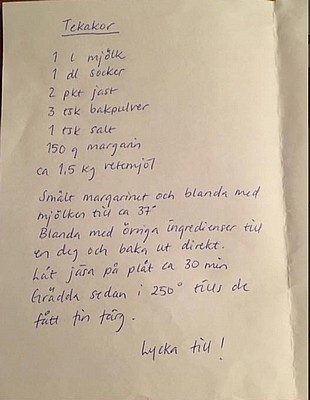 Tekakor
1 l mjölk
1 dl socker
2 pkt jäst
3 tsk bakpulver
1 tsk salt
150 g margarin
ca 1.5 kg vetemjöl
Smält margarinet och blanda med
mjölken till ca 37°
Blanda med övriga ingredienser till
en deg och baka ut direkt.
Låt jäsa på plåt ca 30 min
Grädda sedan i 250° tills de
fått fin färg.
Lycka till!